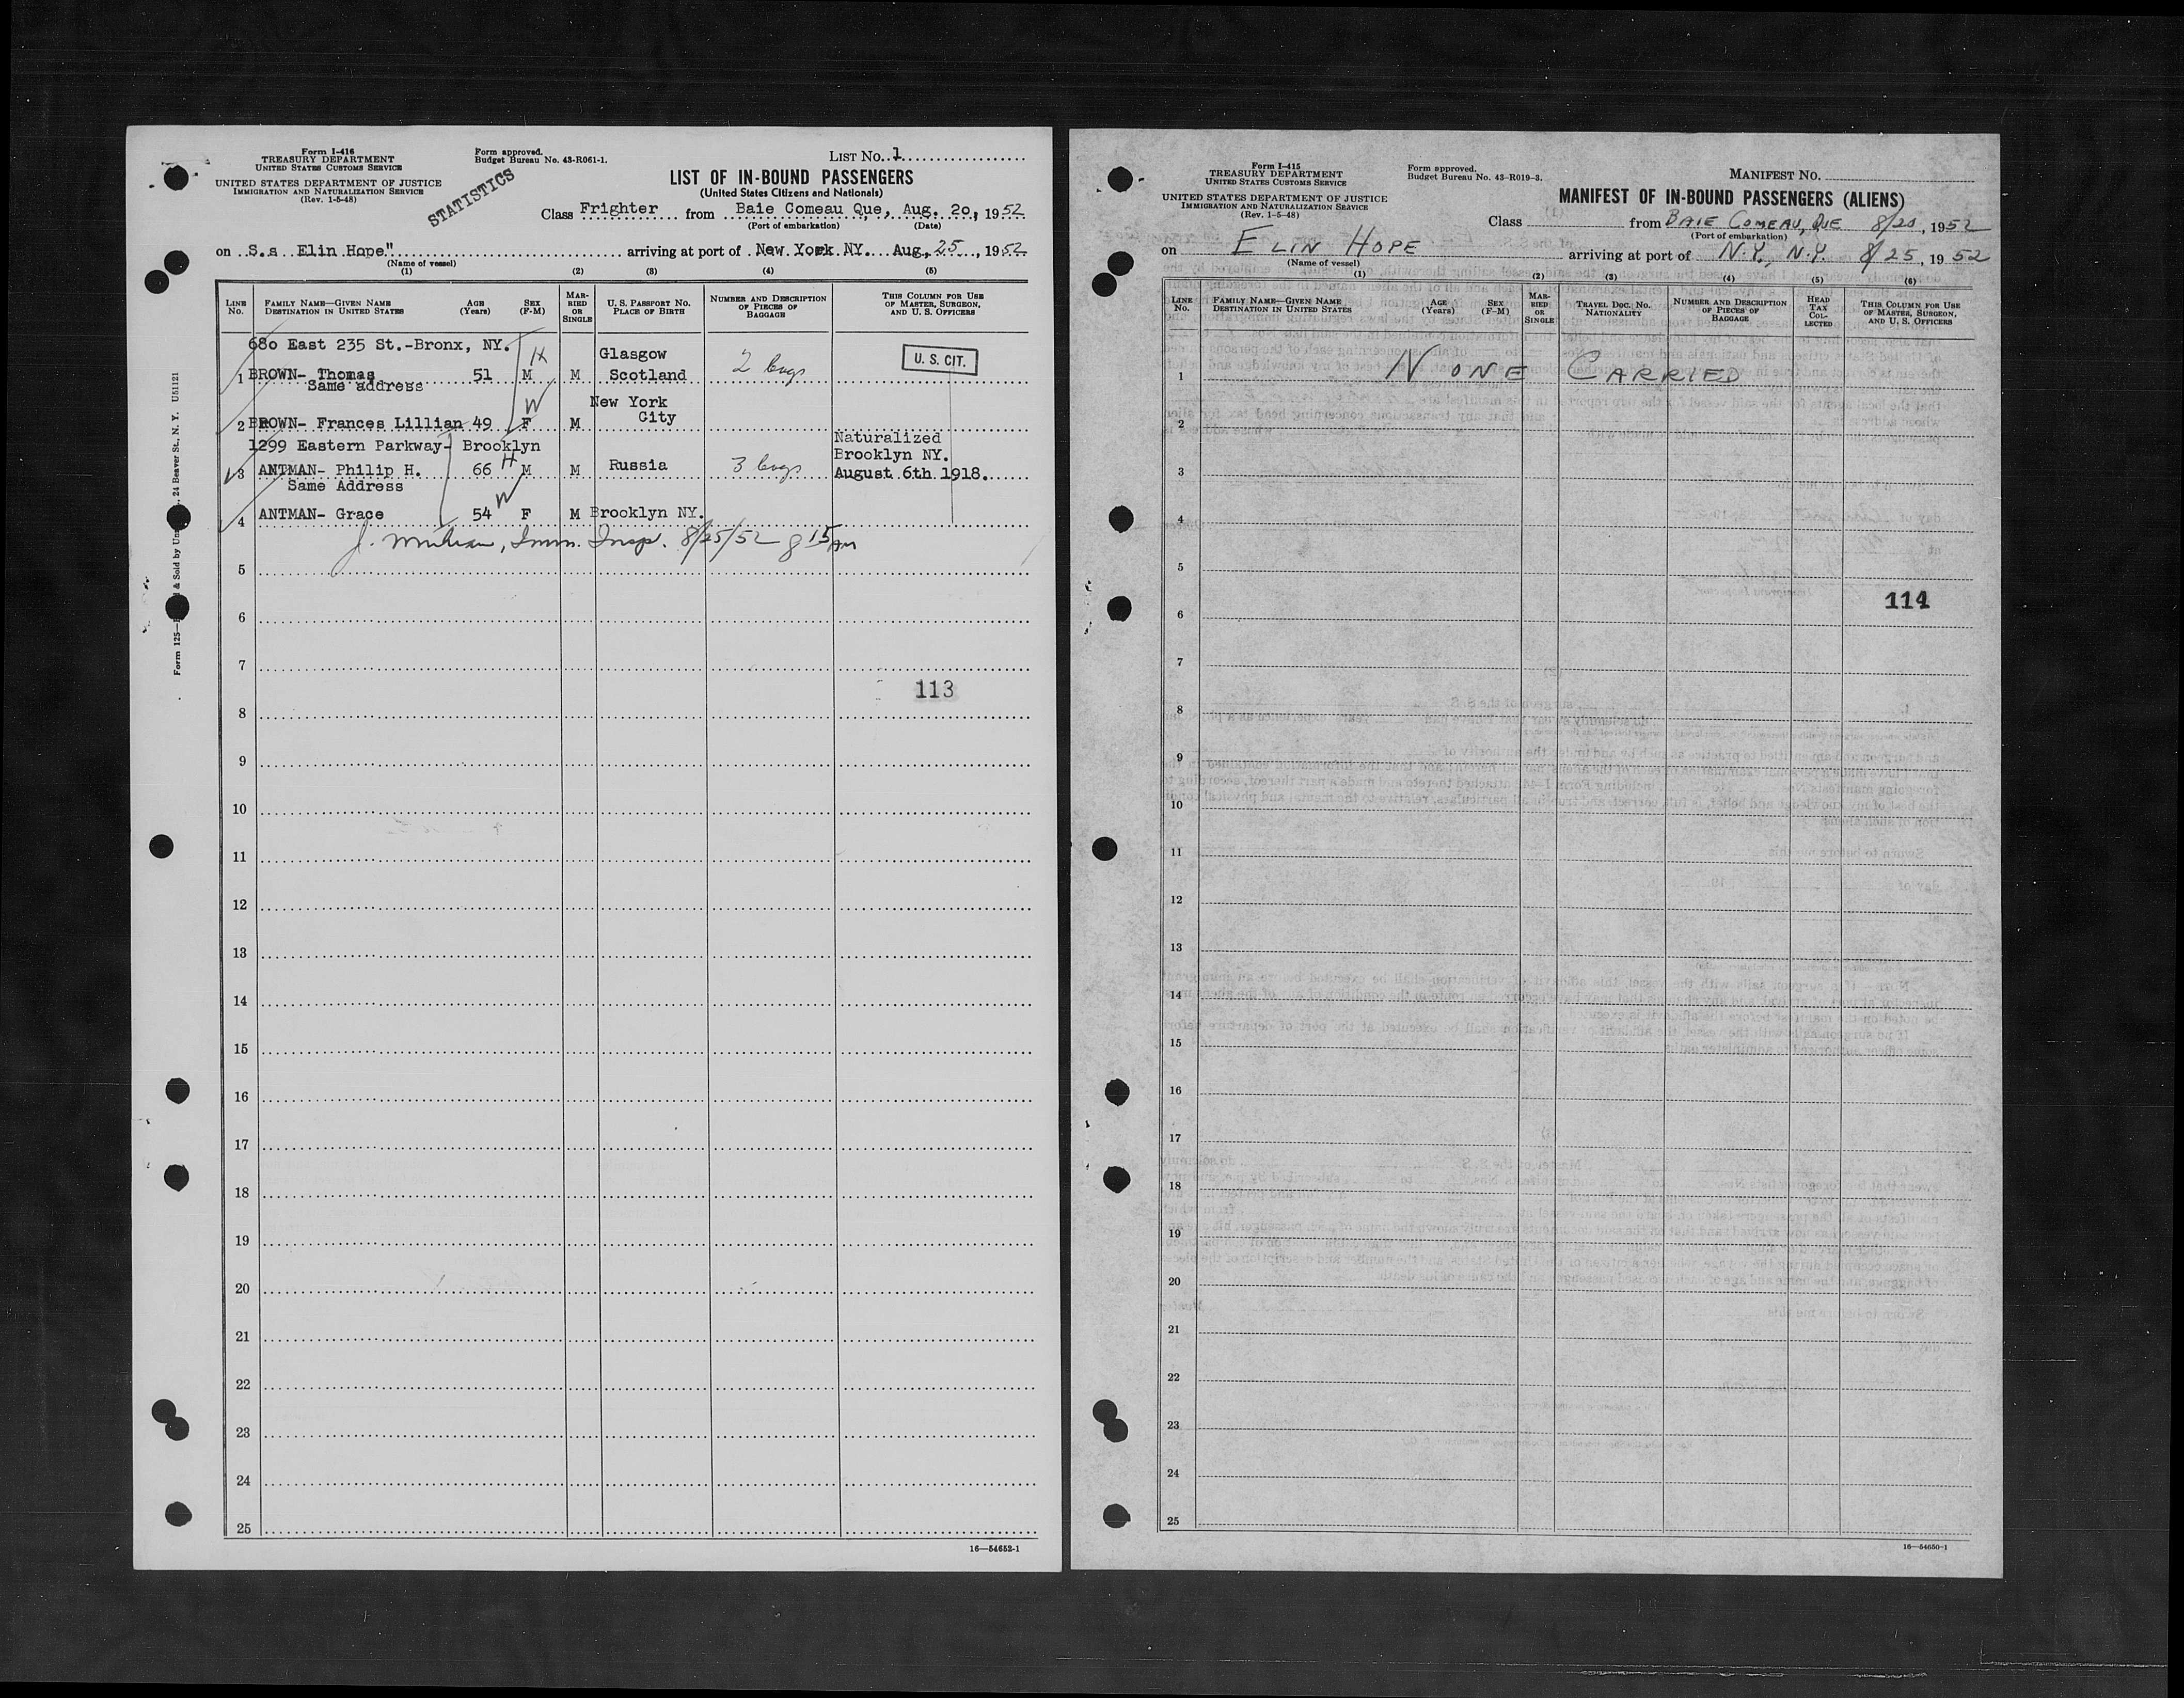 Form I-416
TREASURY DEPARTMENT
UNITED STATES CUSTOMS SERVICE
UNITED STATES DEPARTMENT OF JUSTICE
IMMIGRATION AND NATURALIZATION SERVICE
(Rev. 1-5-48)
Form approved.
Budget Bureau No. 43-R061-1.
STATISTICS
LIST No. 1
LIST OF IN-BOUND PASSENGERS
(United States Citizens and Nationals)
Class Frighter from Baie Comeau Que, Aug. 20, 1952
(Port of embarkation) (Date)
on S.s Elin Hope" arriving at port of New York NY. Aug, 25, 1952
(Name of vessel)
(1) (2) (3) (4) (5)
LINE No. FAMILY NAME—GIVEN NAME DESTINATION IN UNITED STATES AGE (Years) SEX (F-M) MARRIED OR SINGLE U. S. PASSPORT NO. PLACE OF BIRTH NUMBER AND DESCRIPTION OF PIECES OF BAGGAGE THIS COLUMN FOR USE OF MASTER, SURGEON, AND U. S. OFFICERS
680 East 235 St.-Bronx, NY. H Glasgow
1 BROWN- Thomas 51 M M Scotland 2 bags U. S. CIT.
Same address W New York
2 BROWN- Frances Lillian 49 F M City
1299 Eastern Parkway- Brooklyn Naturalized
H Brooklyn NY.
3 ANTMAN- Philip H. 66 M M Russia 3 bags August 6th 1918.
Same Address W
4 ANTMAN- Grace 54 F M Brooklyn NY.
J. Imm. Insp. 8/25/52 8 15 AM
5
6
7
113
8
9
10
11
12
13
14
15
16
17
18
19
20
21
22
23
24
25
16—54652-1
Form 125— & Sold by 24 Beaver St., N. Y. U51121
Form I-415
TREASURY DEPARTMENT
UNITED STATES CUSTOMS SERVICE
UNITED STATES DEPARTMENT OF JUSTICE
IMMIGRATION AND NATURALIZATION SERVICE
(Rev. 1-5-48)
Form approved.
Budget Bureau No. 43-R019-3.
MANIFEST NO.
MANIFEST OF IN-BOUND PASSENGERS (ALIENS)
Class from BAIE COMEAU, QUE 8/20, 1952
(Port of embarkation)
on ELIN HOPE arriving at port of N.Y., N.Y. 8/25, 1952
(Name of vessel)
(1) (2) (3) (4) (5) (6)
LINE No. FAMILY NAME—GIVEN NAME DESTINATION IN UNITED STATES AGE (Years) SEX (F-M) MARRIED OR SINGLE TRAVEL DOC. NO. NATIONALITY NUMBER AND DESCRIPTION OF PIECES OF BAGGAGE HEAD TAX COLLECTED THIS COLUMN FOR USE OF MASTER, SURGEON, AND U. S. OFFICERS
1 NONE CARRIED
2
3
4
5
114
6
7
8
9
10
11
12
13
14
15
16
17
18
19
20
21
22
23
24
25
16—54650-1